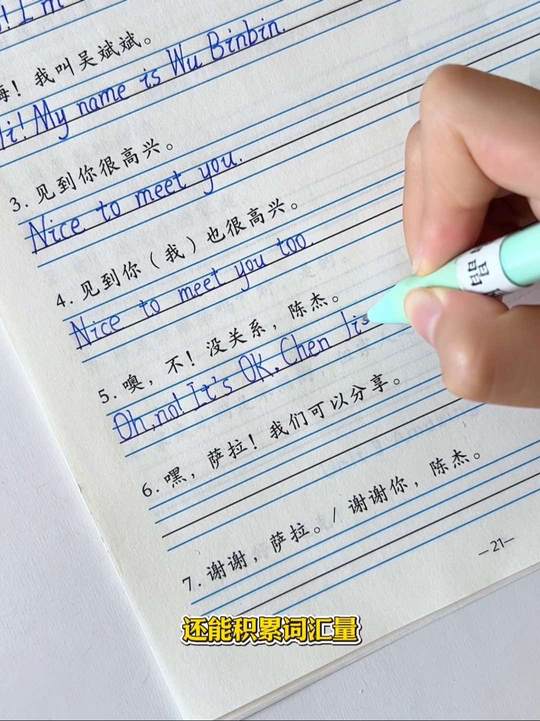 嗨！我叫吴斌斌。
Hi! My name is Wu Binbin.
3. 见到你很高兴。
Nice to meet you.
4. 见到你（我）也很高兴。
Nice to meet you too.
5. 噢，不！没关系，陈杰。
Oh,no! It's OK, Chen Jie
6. 嘿，萨拉！我们可以分享。
7. 谢谢，萨拉。/ 谢谢你，陈杰。
—21—
还能积累词汇量